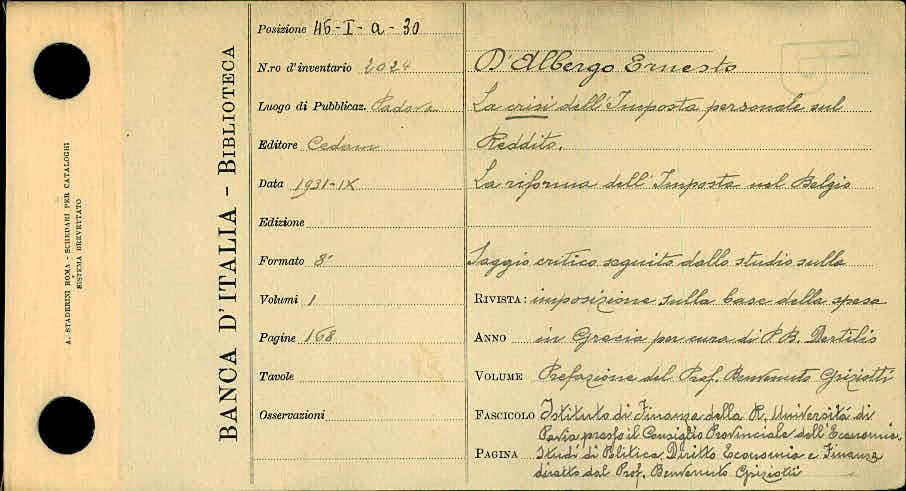 A. STADERINI ROMA - SCHEDARI PER CATALOGHI
SISTEMA BREVETTATO
BANCA D'ITALIA - BIBLIOTECA
Posizione 46-I-a-30
N.ro d'inventario 2024
Luogo di Pubblicaz. Padova
Editore Cedam
Data 1931-IX
Edizione
Formato 8°
Volumi 1
Pagine 168
Tavole
Osservazioni
D'Albergo Ernesto
La crisi dell'Imposta personale sul
Reddito.
La riforma dell'Imposta nel Belgio
Saggio critico seguito dallo studio sulla
RIVISTA: imposizione sulla base della spesa
ANNO in Grecia per cura di P.B. Dertilis
VOLUME Prefazione del Prof. Benvenuto Griziotti
FASCICOLO Istituto di Finanza della R. Università di
Pavia presso il Consiglio Provinciale dell'Economia.
PAGINA Studi di Politica, Diritto Economia e Finanza
diretto dal Prof. Benvenuto Griziotti